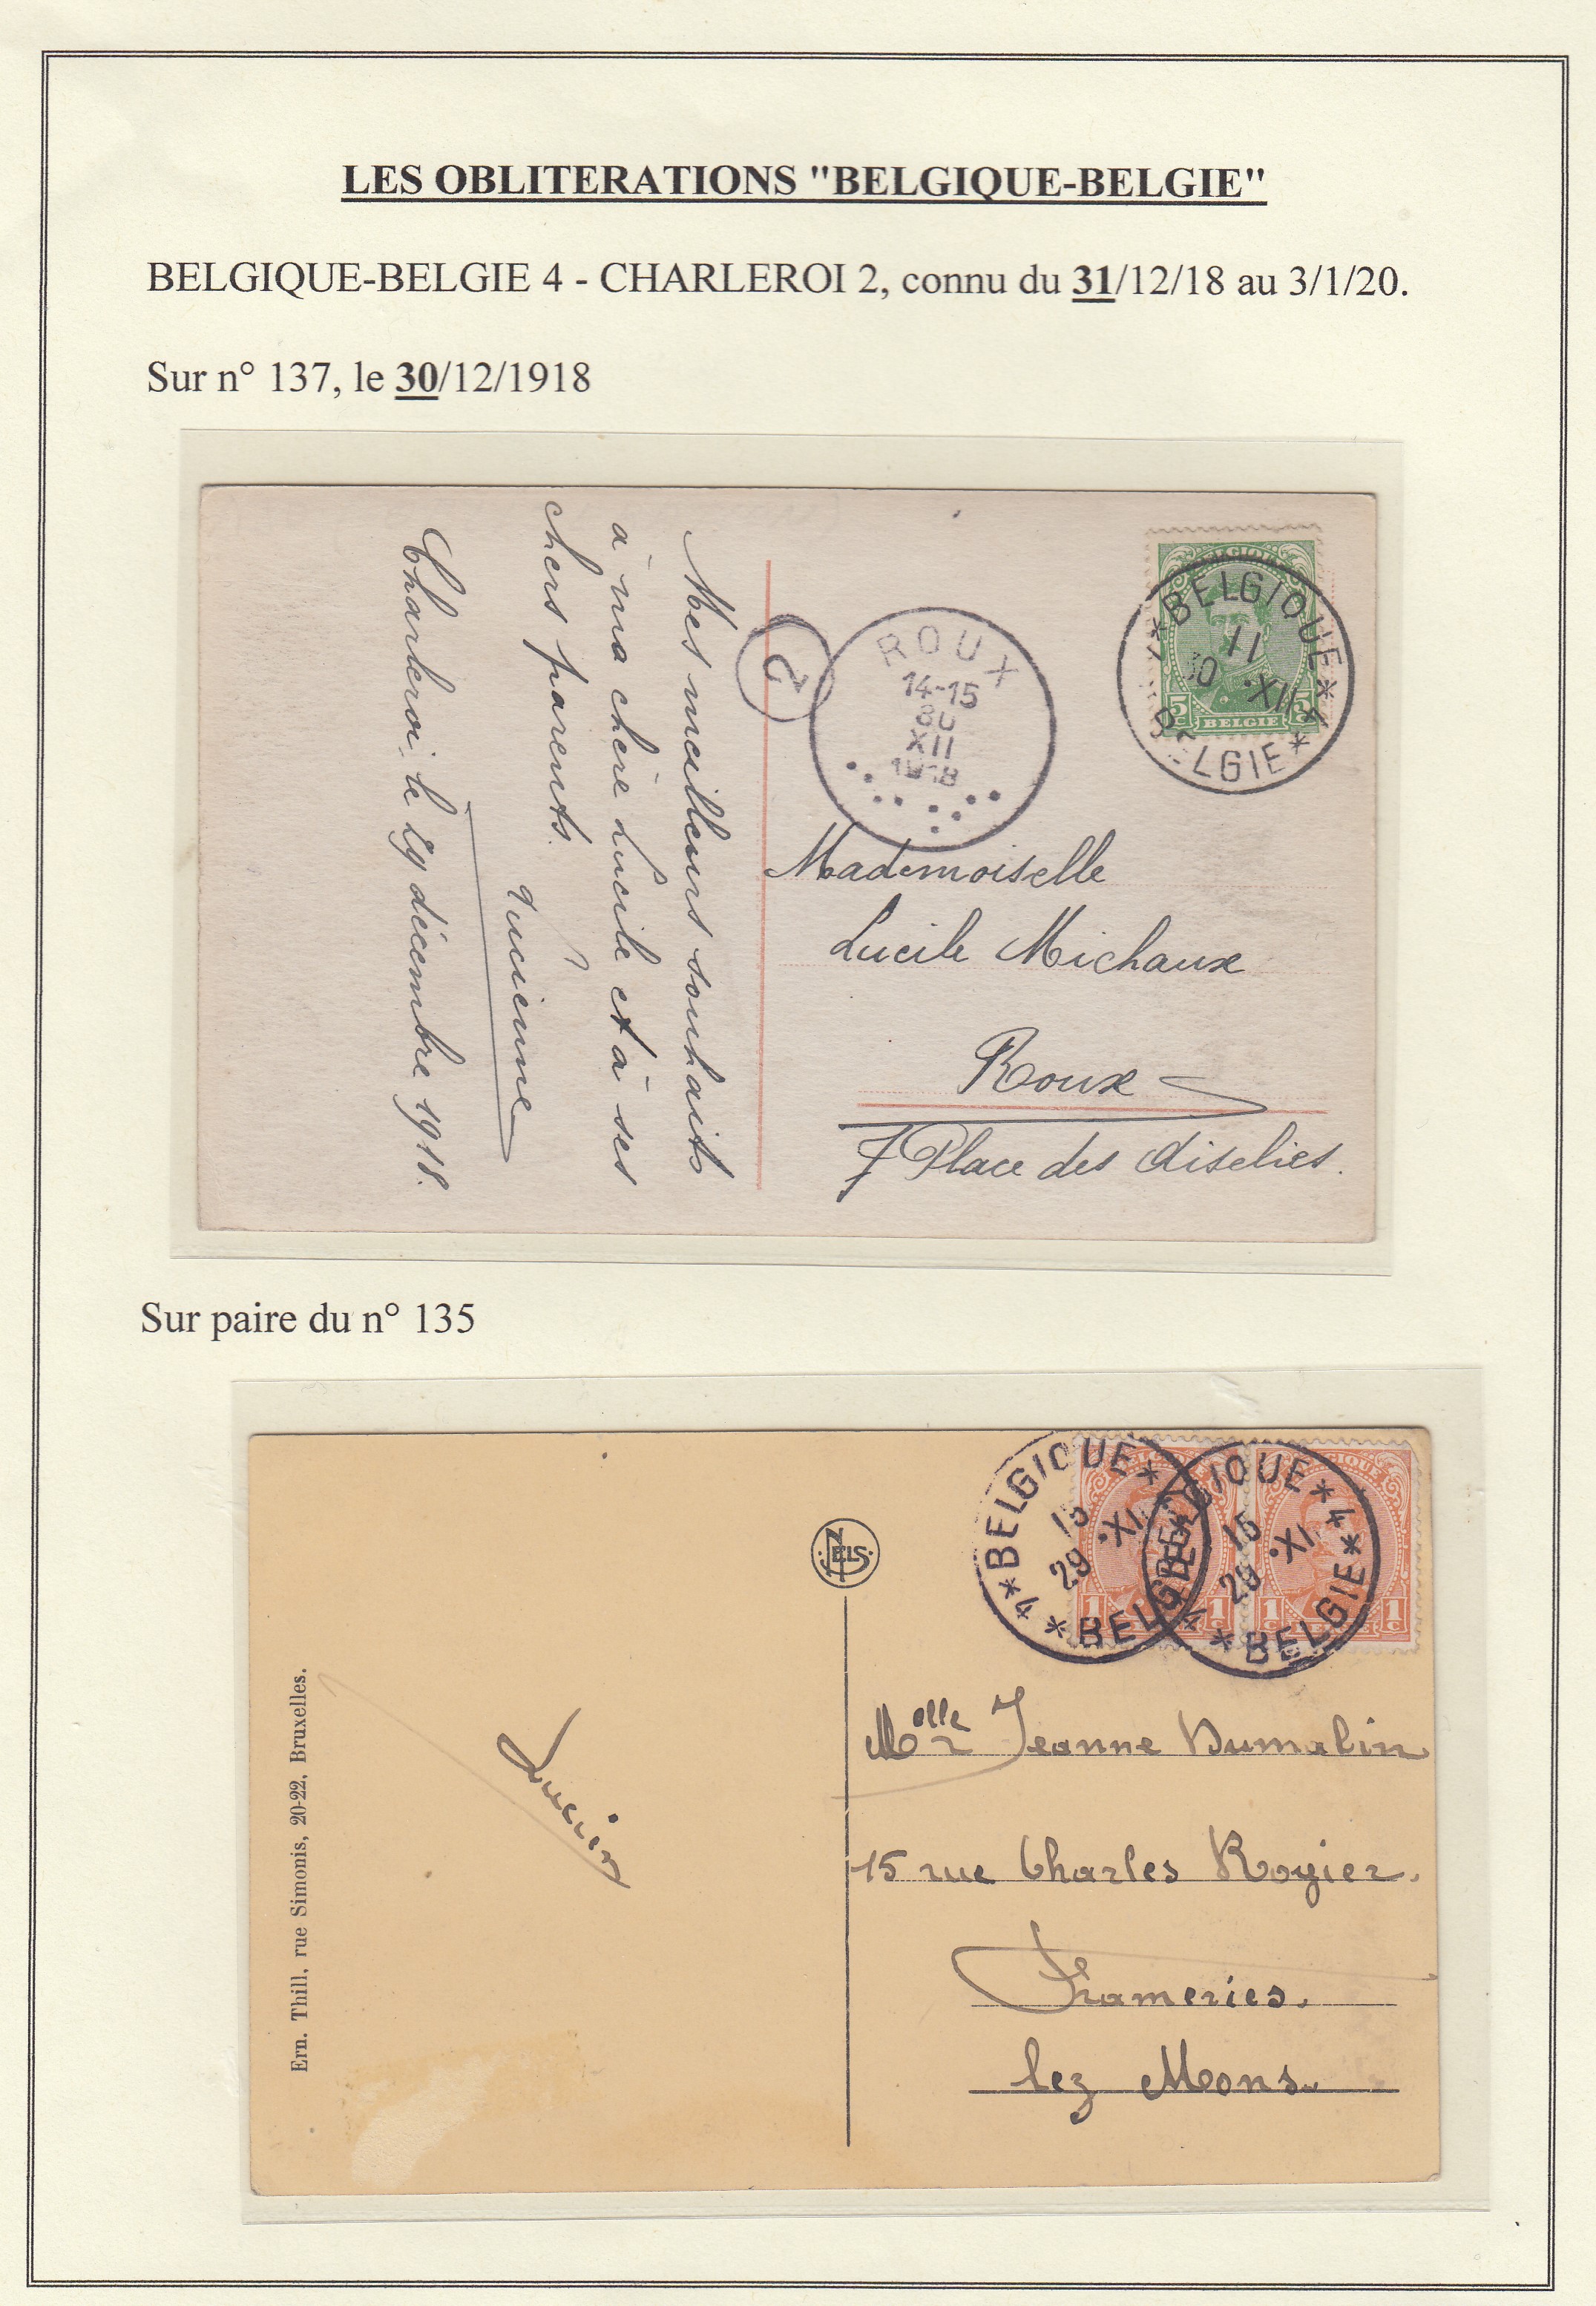 LES OBLITERATIONS "BELGIQUE-BELGIE"
BELGIQUE-BELGIE 4 - CHARLEROI 2, connu du 31/12/18 au 3/1/20.
Sur n° 137, le 30/12/1918
Mes meilleurs souhaits
à ma chère Lucile et à ses
chers parents.
Lucienne
Charleroi, le 29 décembre 1918.
2
ROUX
14-15
30
XII
1918
BELGIQUE
5c BELGIE 5c
*BELGIQUE*4*BELGIE*
11
30 .XII
Mademoiselle
Lucile Michaux
Roux
7 Place des Aiselies.
Sur paire du n° 135
NELS
BELGIQUE
1c BELGIE 1c
BELGIQUE
1c BELGIE 1c
*BELGIQUE*4*BELGIE*4
15
29 .XI
*BELGIQUE*4*BELGIE*4
15
29 .XI
Ern. Thill, rue Simonis, 20-22, Bruxelles.
Lucien
Melle Jeanne Dumalin
15 rue Charles Rogier.
Frameries.
lez Mons.